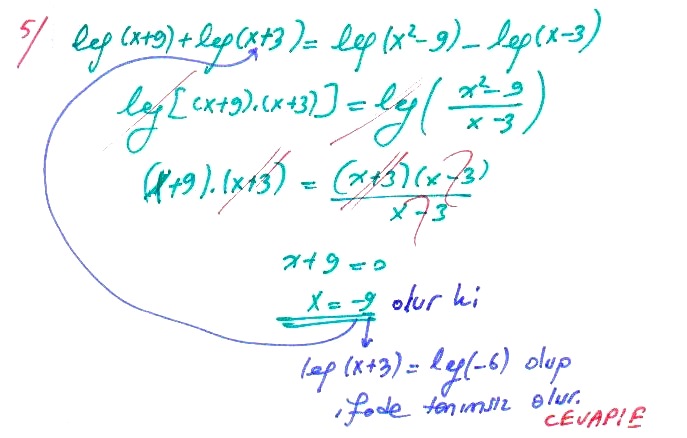 5/ log(x+9)+log(x+3)=log(x²-9)-log(x-3)
log[(x+9).(x+3)]=log((x²-9)/(x-3))
(x+9).(x+3)=((x+3)(x-3))/(x-3)
x+9=0
x=-9 olur ki
log(x+3)=log(-6) olup
ifade tanımsız olur.
CEVAP:E